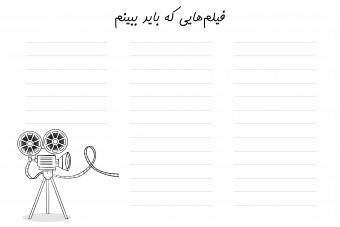 فیلم‌هایی که باید ببینم